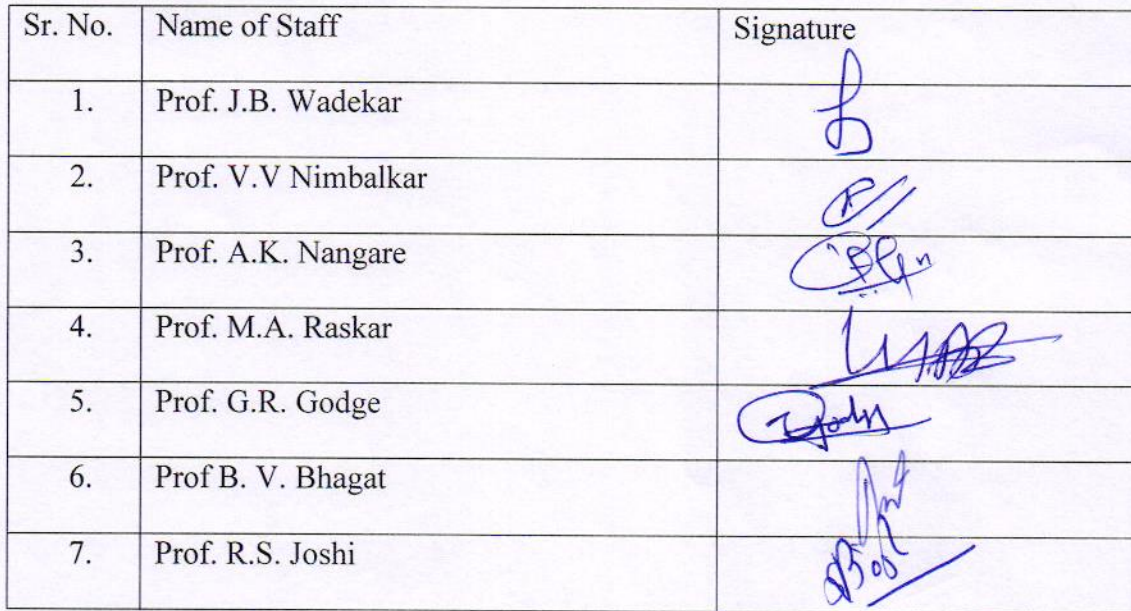 Sr. No. Name of Staff Signature
1. Prof. J.B. Wadekar
2. Prof. V.V Nimbalkar
3. Prof. A.K. Nangare
4. Prof. M.A. Raskar
5. Prof. G.R. Godge
6. Prof B. V. Bhagat
7. Prof. R.S. Joshi